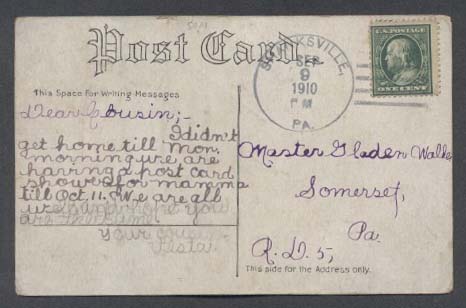 Post Card
This Space For Writing Messages
Dear Cousin;-
I didn't
get home till Mon.
morning we are
having a post card
shower for mamma
till Oct. 11. We are all
well and hope you
are the same
your cousin
SEP
9
1910
PM
PA.
U.S. POSTAGE
ONE CENT
Master Gladen Walke
Somerset,
Pa.
R.D. 5,
This side for the Address only.